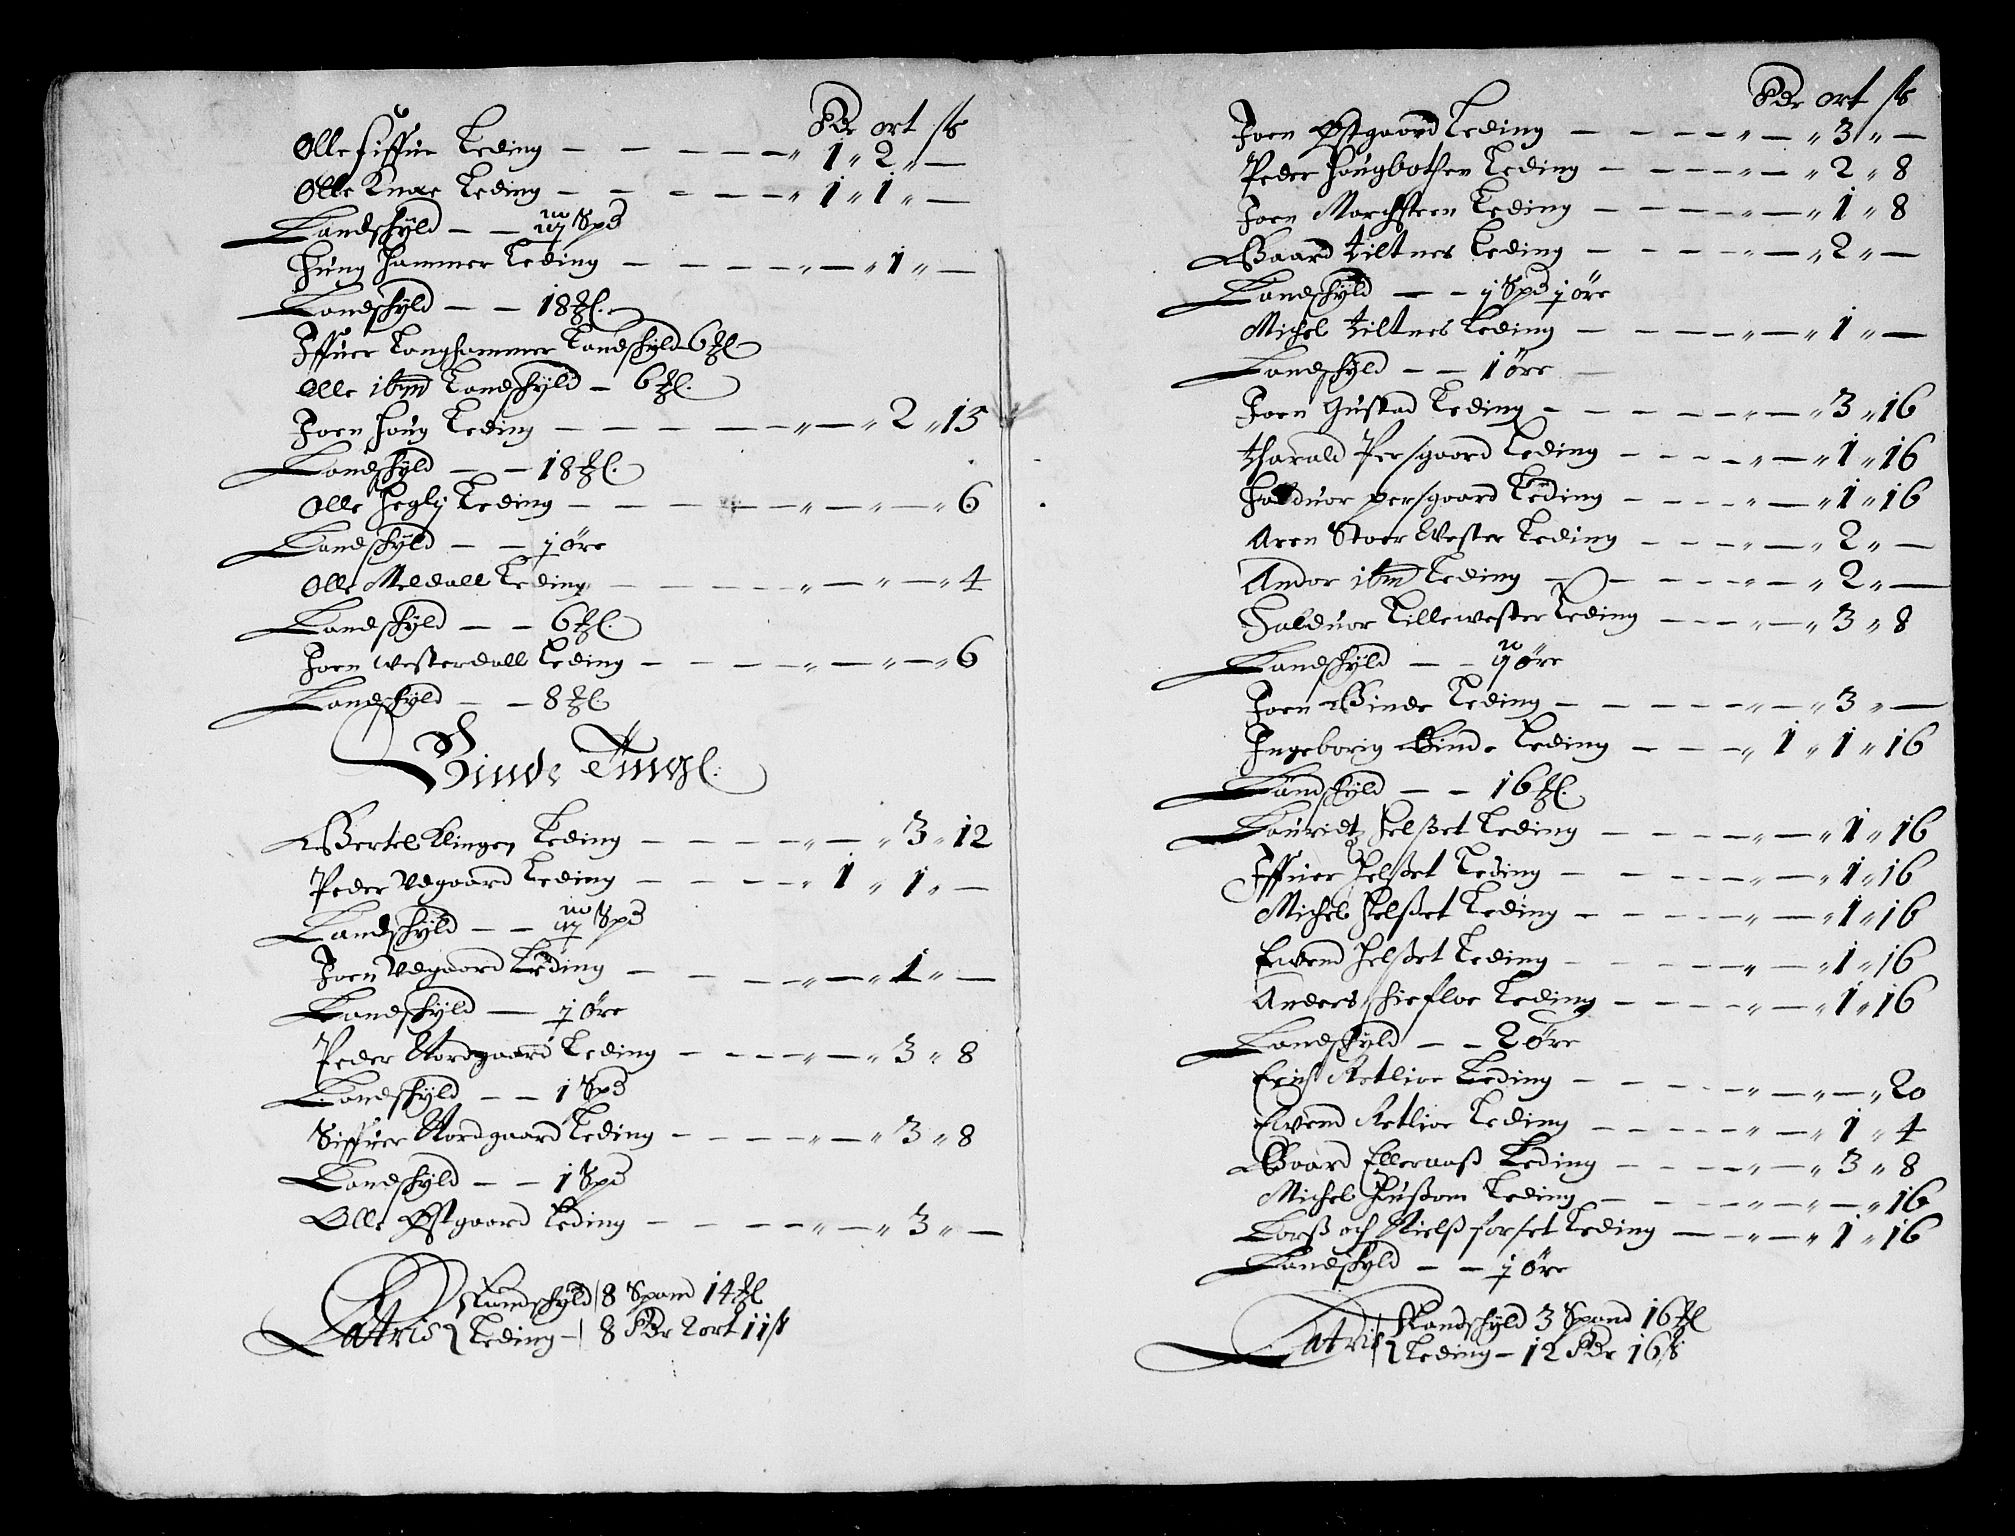 Rdr ort ß
Olle fiffue Leding — — — — — „ 1 „ 2 „ —
Olle Knae Leding — — — — — „ 1 „ 1 „ —
Landschÿld — — Spd
Haug hammer Leding — — — — „ — „ 1 „ —
Landschÿld — — 18 ℔l.
Iffuer Langhammer Landschÿld 6 ℔l
Olle ibm Landschÿld — 6 ℔l.
Joen Houg Leding — — — — — „ — „ 2 „ 15
Landschÿld — — 18 ℔l.
Olle Heglj Leding — — — — — „ — „ — „ 6
Landschÿld — — j öre
Olle Meldall Leding — — — — „ — „ — „ 4
Landschÿld — — 6 ℔l.
Joen Westerdall Leding — — — — „ — „ — „ 6
Landschÿld — — 8 ℔l
Binde Tingl.
Bertel Klingen Leding — — — — „ — „ 3 „ 12
Peder Vdgaard Leding — — — — „ 1 „ 1 „ —
Landschÿld — — Spd
Joen Vdgaard Leding — — — — „ — „ 1 „ —
Landschÿld — öre
Peder Nordgaard Leding — — — „ — „ 3 „ 8
Landschÿld — — 1 Spd
Siffuer Nordgaard Leding — — — — „ — „ 3 „ 8
Landschÿld — — 1 Spd
Olle Østgaard Leding — — — — „ — „ 3 „ —
Landschÿld 8 Spand 14 ℔l
Latris Leding — 8 Rdr 2 ort 11 ß
Rdr ort ß
Joen Østgaard Leding — — — — „ — „ 3 „ —
Peder Haugbothen Leding — — — — „ — „ 2 „ 8
Joen Marchsteen Leding — — — — „ — „ 1 „ 8
Baard tiltnes Leding — — — — „ — „ 2 „ —
Landschÿld — — Spd öre
Michel tiltnes Leding — — — — „ — „ 1 „ —
Landschÿld — — 1 öre —
Joen Gustad Leding — — — — — „ — „ 3 „ 16
tharald Persgaard Leding — — — — „ — „ 1 „ 16
Halduor persgaard Leding — — — — „ — „ 1 „ 16
Aren Stoer Wester Leding — — — „ — „ 2 „ —
Andor ibm Leding — — — — „ — „ 2 „ —
Halduor Lillewester Leding — — — „ — „ 3 „ 8
Landschÿld — — öre
Joen Binde Leding — — — — — „ — „ 3 „ —
Ingeborig Binde Leding — — — „ 1 „ 1 „ 16
Landschÿld — — 16 ℔l.
Lauridtz Helßet Leding — — — — „ — „ 1 „ 16
Iffuer Helßet Leding — — — — „ — „ 1 „ 16
Michel Helßet Leding — — — — „ — „ 1 „ 16
Ewend Helßet Leding — — — — „ — „ 1 „ 16
Anders Schiefloe Leding — — — — „ — „ 1 „ 16
Landschÿld — — 2 öre
Erich Retlioe Leding — — — — „ — „ — „ 20
Ewend Retlioe Leding — — — — „ — „ 1 „ 4
Baard Ellernaß Leding — — — — „ — „ 3 „ 8
Michel Hußom Leding — — — — „ — „ — „ 16
Larß och Nielß forset Leding — „ — „ 1 „ 16
Landschÿld — — öre
Landschÿld 3 Spand 16 ℔l
Latris Leding — 12 Rdr 16 ß